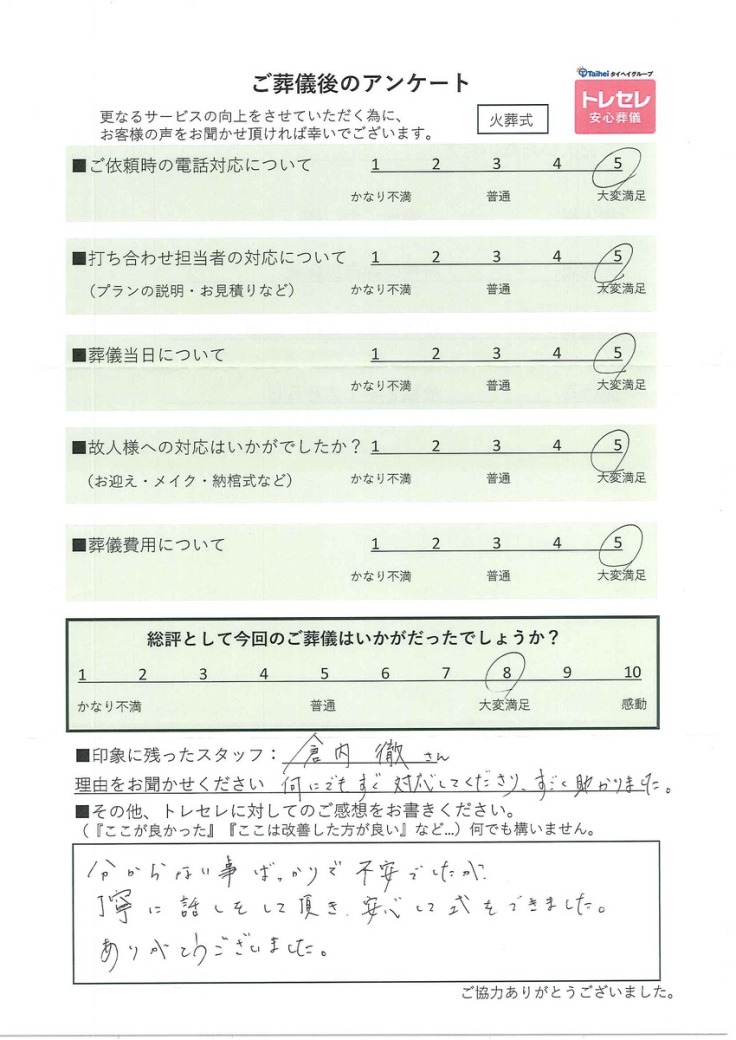 ご葬儀後のアンケート
Taihei タイヘイグループ
トレセレ
安心葬儀
更なるサービスの向上をさせていただく為に、
お客様の声をお聞かせ頂ければ幸いでございます。
火葬式
■ご依頼時の電話対応について 1 2 3 4 5
かなり不満 普通 大変満足
■打ち合わせ担当者の対応について 1 2 3 4 5
（プランの説明・お見積りなど） かなり不満 普通 大変満足
■葬儀当日について 1 2 3 4 5
かなり不満 普通 大変満足
■故人様への対応はいかがでしたか？ 1 2 3 4 5
（お迎え・メイク・納棺式など） かなり不満 普通 大変満足
■葬儀費用について 1 2 3 4 5
かなり不満 普通 大変満足
総評として今回のご葬儀はいかがだったでしょうか？
1 2 3 4 5 6 7 8 9 10
かなり不満 普通 大変満足 感動
■印象に残ったスタッフ： 倉内 徹 さん
理由をお聞かせください 何にでもすぐ対応してくださり、すごく助かりました。
■その他、トレセレに対してのご感想をお書きください。
（『ここが良かった』『ここは改善した方が良い』など...）何でも構いません。
分からない事ばっかりで不安でしたが、
丁寧に話しをして頂き、安心して式をできました。
ありがとうございました。
ご協力ありがとうございました。